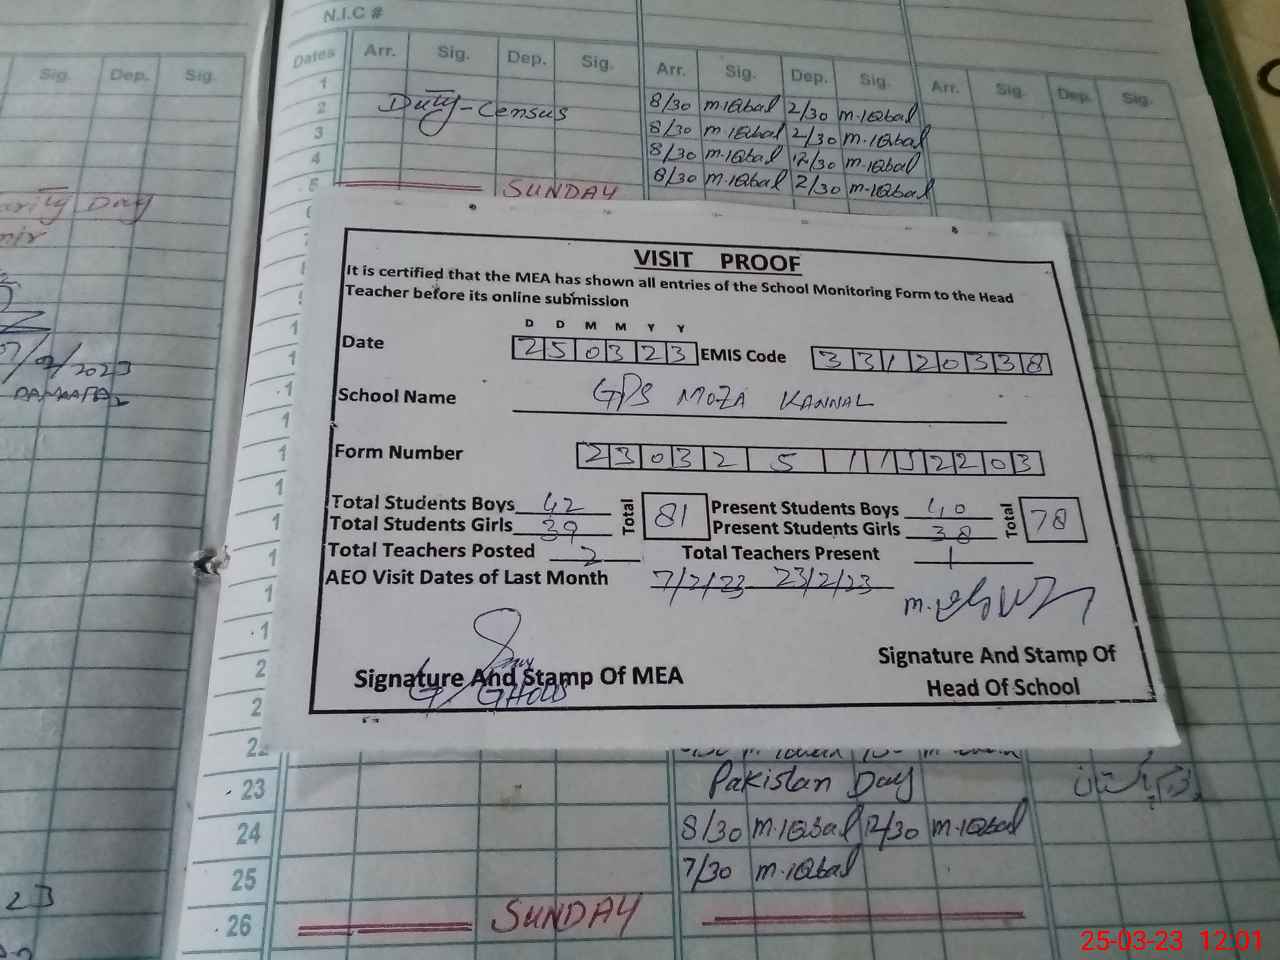 N.I.C #
Dates Arr. Sig. Dep. Sig. Arr. Sig. Dep. Sig. Arr. Sig. Dep. Sig.
Sig. Dep. Sig.
1
2 Duty-Census 8/30 M.IQbal 2/30 M.IQbal
3 8/30 M.IQbal 2/30 M.IQbal
4 8/30 M.IQbal 12/30 M.IQbal
5 SUNDAY 8/30 M.IQbal 2/30 M-IQbal
Day
VISIT PROOF
It is certified that the MEA has shown all entries of the School Monitoring Form to the Head
Teacher before its online submission
D D M M Y Y
Date 250323 EMIS Code 33120338
School Name GPS MOZA KANNAL
Form Number
Total Students Boys 42 Total 81 Present Students Boys 40 Total 78
Total Students Girls 39 Present Students Girls 38
Total Teachers Posted 2 Total Teachers Present 1
AEO Visit Dates of Last Month 7/2/23 23/2/23
Signature And Stamp Of MEA
Signature And Stamp Of
Head Of School
22
23 Pakistan Day
24 8/30 M.IQbal 12/30 M.IQbal
25 7/30 M.IQbal
26 SUNDAY
23
25-03-23 12:01